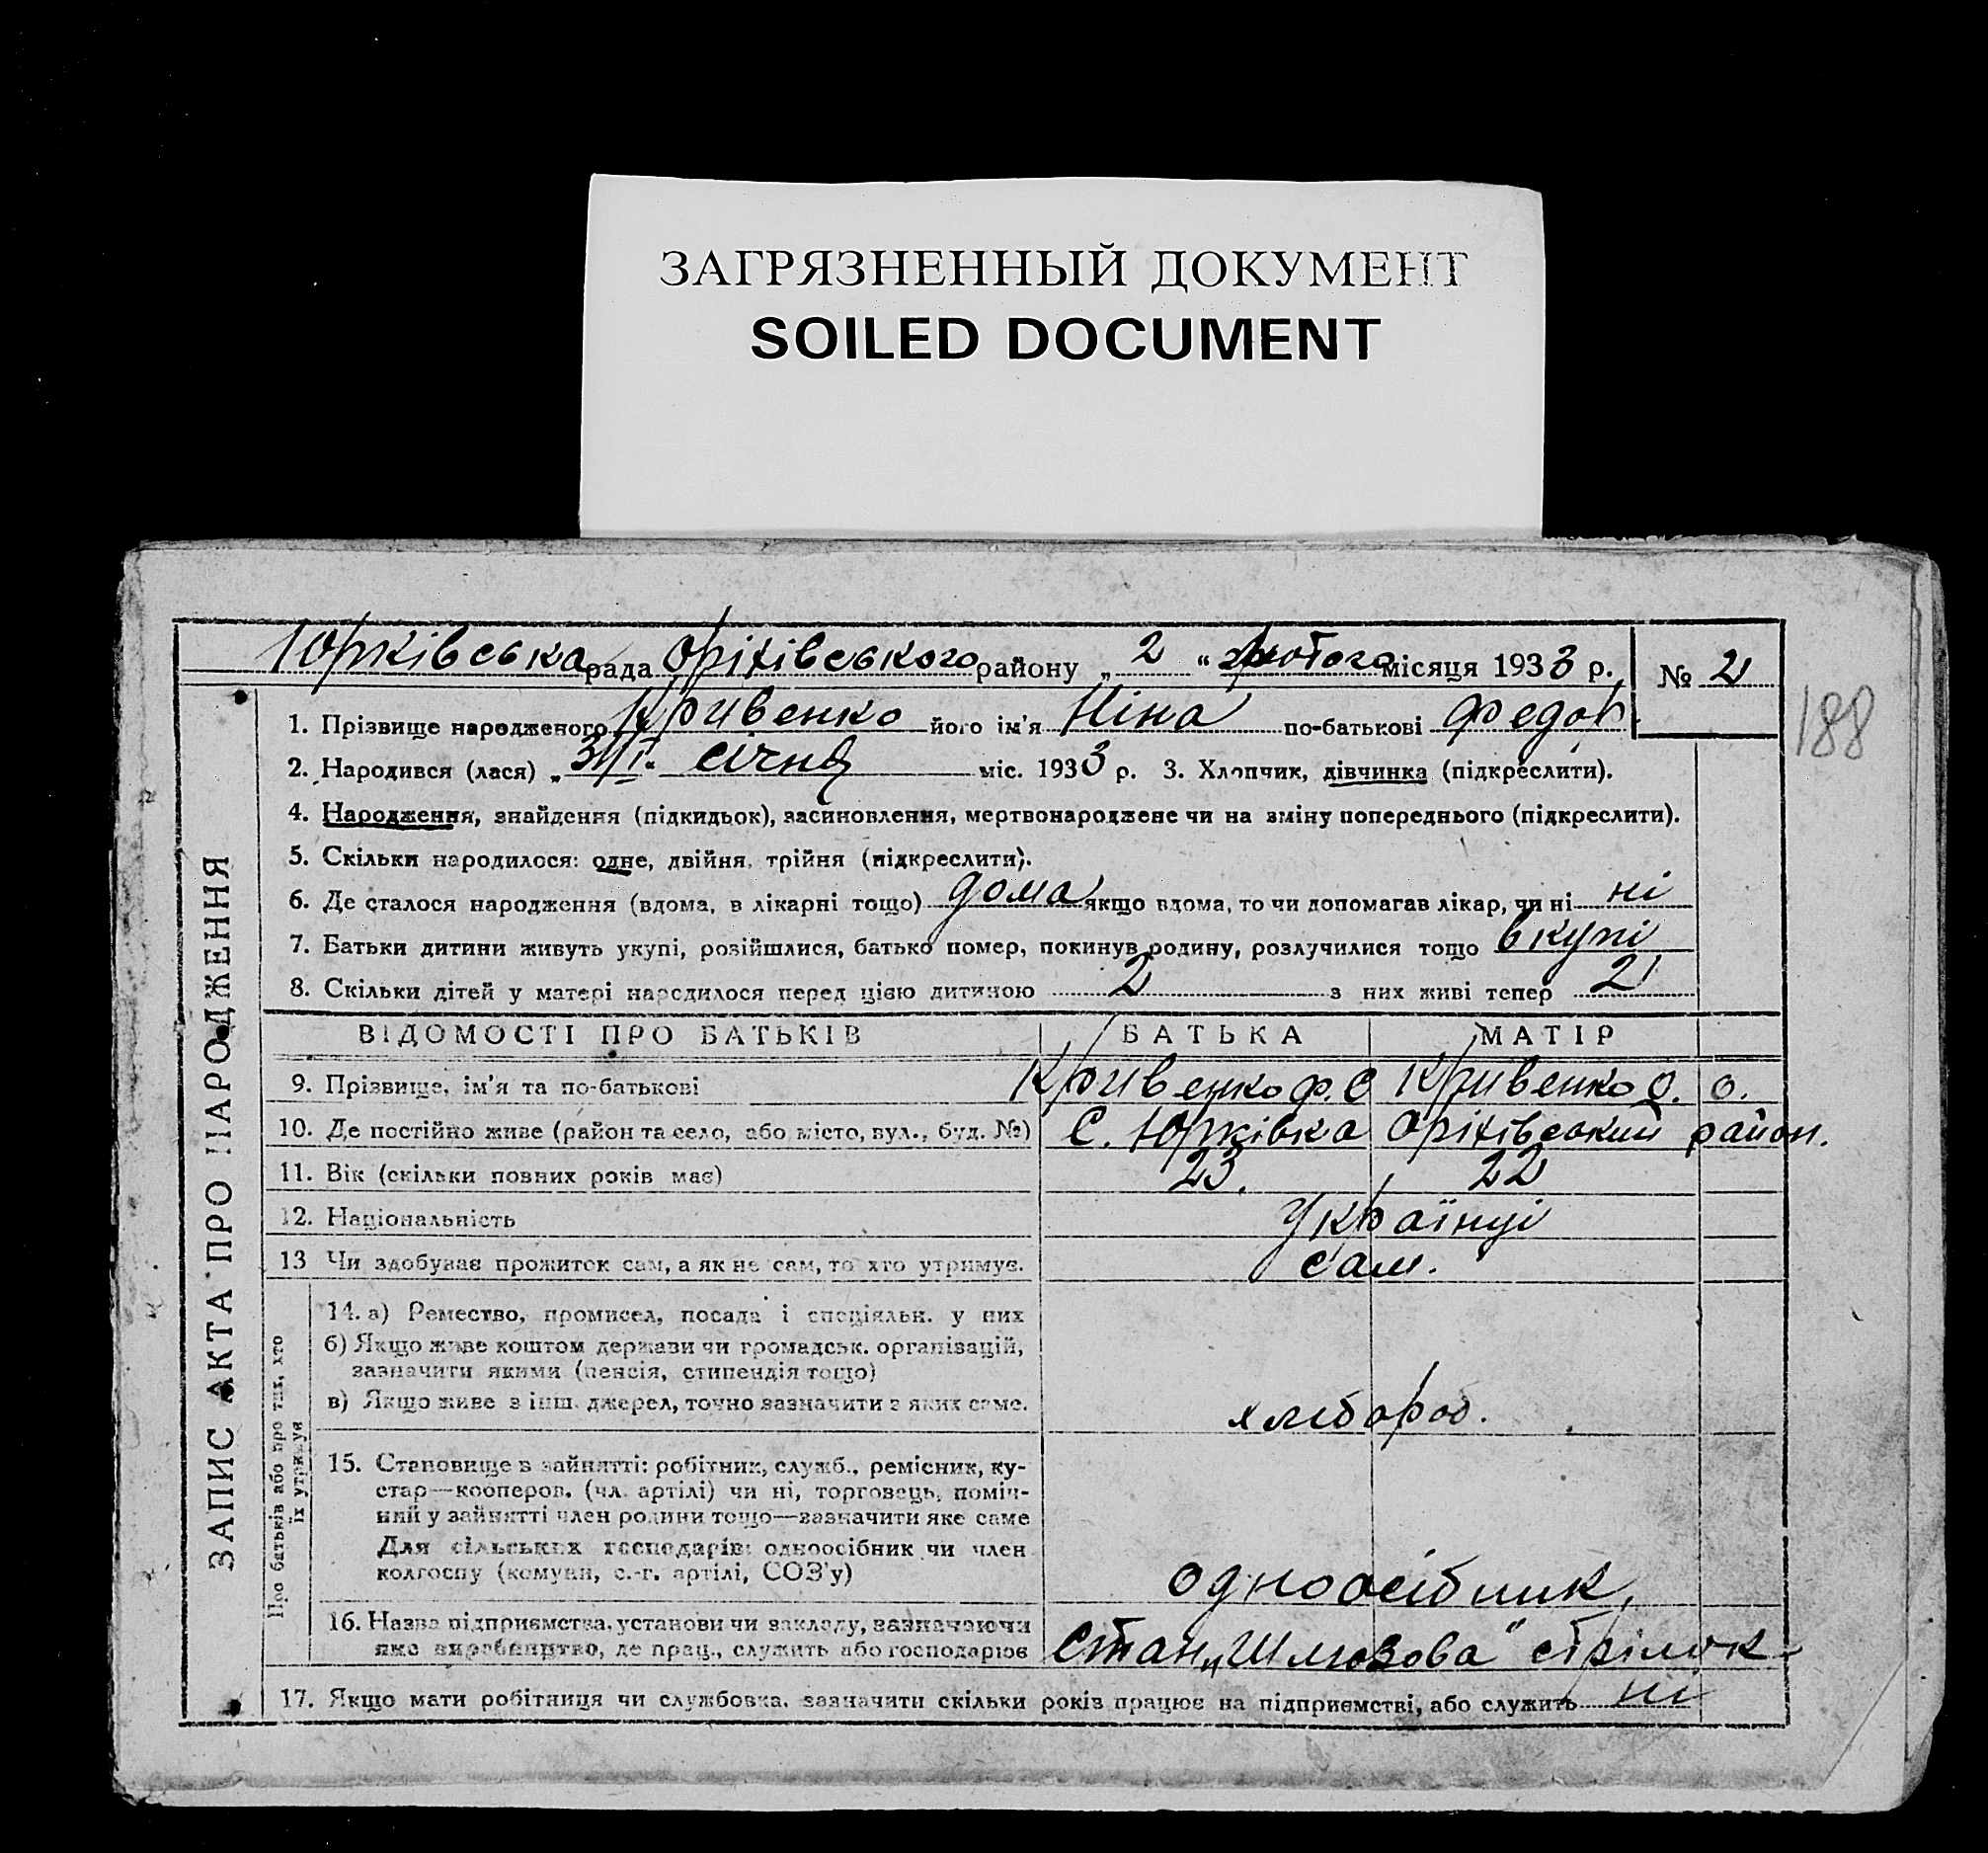 ЗАГРЯЗНЕННЫЙ ДОКУМЕНТ
SOILED DOCUMENT
Юрківська рада Оріхівського району „ 2 “ лютого місяця 1933 р. № 2
188
1. Прізвище народженого Кривенко його ім'я Ніна по-батькові Федор.
2. Народився (лася) „ 31/I. січня міс. 1933 р. 3. Хлопчик, дівчинка (підкреслити).
4. Народження, знайдення (підкидьок), засиновлення, мертвонароджене чи на зміну попереднього (підкреслити).
5. Скільки народилося: одне, двійня, трійня (підкреслити).
6. Де сталося народження (вдома, в лікарні тощо) дома якщо вдома, то чи допомагав лікар, чи ні ні
7. Батьки дитини живуть укупі, розійшлися, батько помер, покинув родину, розлучилися тощо вкупі
8. Скільки дітей у матері народилося перед цією дитиною 2 з них живі тепер 2
ВІДОМОСТІ ПРО БАТЬКІВ БАТЬКА МАТІР
9. Прізвище, ім'я та по-батькові Кривенко Ф. С Кривенко О. О.
10. Де постійно живе (район та село, або місто, вул., буд. №) С. Юрківка Оріхівський район.
11. Вік (скільки повних років має) 23. 22
12. Національність Українці
13 Чи здобуває прожиток сам, а як не сам, то хто утримує. сам.
14. а) Ремество, промисел, посада і спеціяльн. у них
б) Якщо живе коштом держави чи громадськ. організацій,
зазначити якими (пенсія, стипендія тощо)
в) Якщо живе з інш. джерел, точно зазначити з яких саме. хлібороб.
15. Становище в зайнятті: робітник, служб., ремісник, ку-
стар—кооперов. (чл. артілі) чи ні, торговець, поміч-
ний у зайнятті член родини тощо—зазначити яке саме
Для сільських господарів: одноосібник чи член
колгоспу (комуни, с.-г. артілі, СОЗ'у) одноосібник,
16. Назва підприємства, установи чи закладу, зазначаючи
яке виробництво, де прац., служить або господарює Стан „Шлюзова" стрілок
17. Якщо мати робітниця чи службовка, зазначити скільки років працює на підприємстві, або служить ні
ЗАПИС АКТА ПРО НАРОДЖЕННЯ
Про батьків або про тих, хто
їх утримує